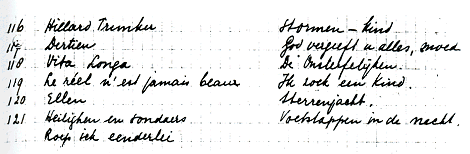 116 Hillard Trunker Stormen - Kind
117 Dertien God vergeeft u alles, moed
118 Vita Longa De Onsterfelijken.
119 Le réel n'est jamais beau Ik zoek een Kind.
120 Ellen Sterrenjacht.
121 Heilighen en Sondaers Voetstappen in de nacht.
Roep ick eenderlei